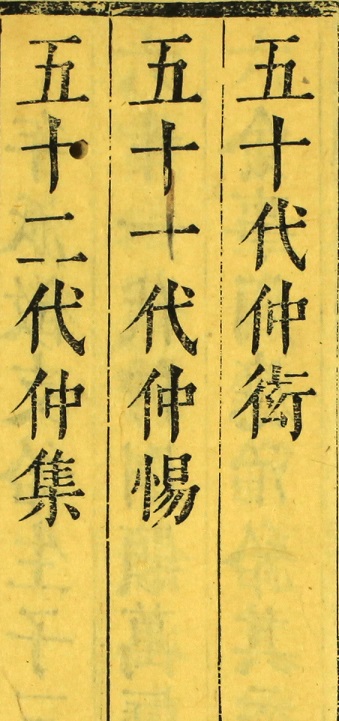 五十代仲衒
五十一代仲惕
五十二代仲集